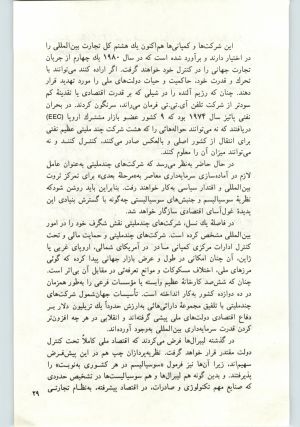 این شرکت‌ها و کمپانی‌ها هم‌اکنون یک هشتم کل تجارت بین‌المللی را
در اختیار دارند و برآورد شده است که در سال ۱۹۸۰ یک چهارم از جریان
تجارت جهانی را در کنترل خود خواهند گرفت. اگر اراده کنند می‌توانند با
تحرک و قدرت خود، حاکمیت و حیات دولت‌های ملی را مورد تهدید قرار
دهند. چنان که رژیم آلنده را در شیلی که بر قدرت اقتصادی یا نقدینهٔ کم
سودتر از شرکت تلفن آی.تی.تی فرمان می‌راند، سرنگون کردند. در بحران
نفتی پائیز سال ۱۹۷۴ بود که ۹ کشور عضو بازار مشترک اروپا (EEC)
دریافتند که نه می‌توانند حواله‌هائی را که هشت شرکت چند ملیتی عظیم نفتی
برای انتقال از کشور اصلی و بالعکس صادر می‌کنند، کنترل کنند و نه
می‌توانند میزان آن را معلوم کنند.
در حال حاضر به‌نظر می‌رسد که شرکت‌های چندملیتی به‌عنوان عامل
لازم در آماده‌سازی سرمایه‌داری معاصر به «مرحلهٔ بعدی» برای تمرکز ثروت
بین‌المللی و اقتدار سیاسی به‌کار خواهند رفت. بنابراین باید روشن شود که
نظریهٔ سوسیالیسم و جنبش‌های سوسیالیستی چگونه با گسترش بنیادی این
پدیدهٔ غول‌آسای اقتصادی سازگار خواهد شد.
در فاصلهٔ یک نسل، شرکت‌های چندملیتی نقش شگرف خود را در امور
بین‌المللی مشخص کرده است. شرکت‌های چندملیتی و حمایت مالی و تحت
کنترل ادارات مرکزی کمپانی مادر در آمریکای شمالی، اروپای غربی یا
ژاپن، آن چنان امکانی در طول و عرض بازار جهانی پیدا کرده که گوئی
مرزهای ملی، اختلاف مسکوکات و موانع تعرفه‌ئی در مقابل آن بی‌اثر است.
چنان که شش‌صد کارخانهٔ عظیم وابسته یا مؤسسات فرعی را به‌طور همزمان
در ده دوازده کشور به‌کار انداخته است. تأسیسات جهان‌شمول شرکت‌های
چندملیتی با تلفیق مجموعهٔ دارائی‌هائی به‌ارزش حدوداً یک تریلیون دلار بر
دفاع اقتصادی دولت‌های ملی پیشی گرفته‌اند و انقلابی در هر چه افزون‌تر
کردن قدرت سرمایه‌داری بین‌المللی به‌وجود آورده‌اند.
در گذشته لیبرال‌ها فرض می‌کردند که اقتصاد ملی کاملاً تحت کنترل
دولت مقتدر قرار خواهد گرفت. نظریه‌پردازان چپ هم در این پیش‌فرض
سهیم‌اند، زیرا آن‌ها نیز فرمول «سوسیالیسم در هر کشوری به‌نوبت» را
پذیرفتند. و بدین گونه هم لیبرال‌ها و هم سوسیالیست‌ها در تشخیص حدودی
که صنایع مهم تکنولوژی و صادرات، در اقتصاد پیشرفته، به‌نظام تجارتی
۲۹